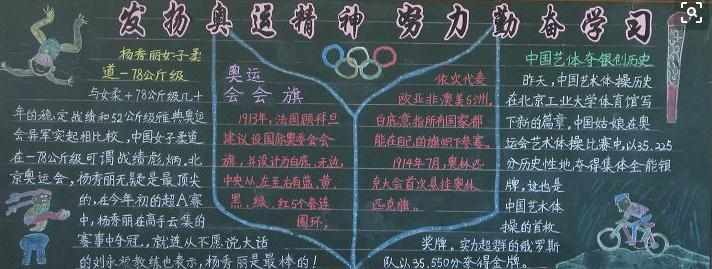 发扬奥运精神 努力勤奋学习
杨秀丽女子柔
道-78公斤级
与女柔+78公斤级几十
年的稳定战绩和52公斤级雅典奥运
会异军突起相比较,中国女子柔道
在-78公斤级可谓战绩彪炳,北
京奥运会,杨秀丽无疑是最顶尖
的,在今年初的超A赛
中,杨秀丽在高手云集的
赛事中夺冠,就连从不愿说大话
的刘永福教练也表示,杨秀丽是最棒的!
奥运
会会旗
1913年,法国顾拜旦
建议设国际奥委会会
旗,并设计为白底、无边,
中央从左至右有蓝、黄、
黑、绿、红5个套连
圆环,
依次代表
欧亚非澳美5洲,
白底意指所有国家都
能在自己的旗帜下参赛。
1914年7月,奥林匹
克大会首次悬挂奥林
匹克旗。
中国艺体夺银创历史
昨天,中国艺术体操历史
在北京工业大学体育馆写
下新的篇章,中国姑娘在奥
运会艺术体操比赛中,以35.225
分历史性地夺得集体全能银
牌,这也是
中国艺术体
操的首枚
奖牌。实力超群的俄罗斯
队以35.550分夺得金牌。